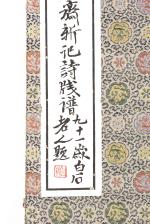 齋新記詩牋譜
九十一歲白石
老人題